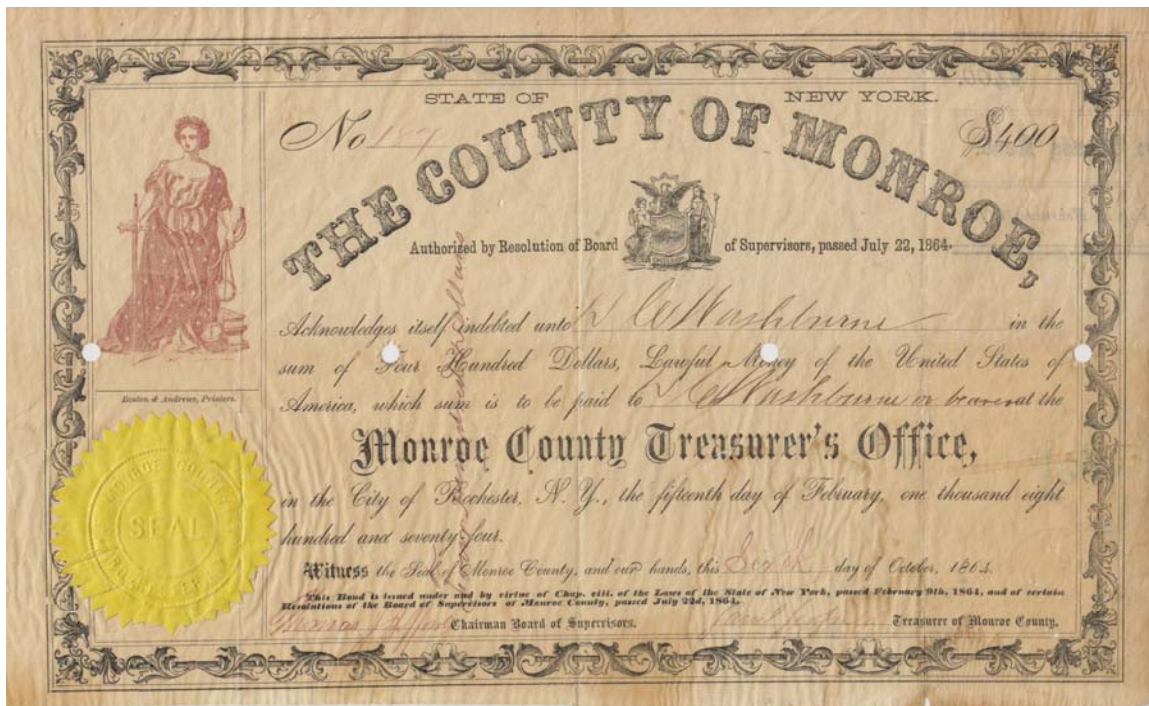 STATE OF NEW YORK.
No 187 $400
THE COUNTY OF MONROE,
Authorized by Resolution of Board of Supervisors, passed July 22, 1864.
EXCELSIOR
Acknowledges itself indebted unto D C Washburne in the
sum of Four Hundred Dollars, Lawful Money of the United States of
America, which sum is to be paid to D C Washburne or bearer at the
Benton & Andrews, Printers.
Monroe County Treasurer's Office,
in the City of Rochester, N. Y., the fifteenth day of February, one thousand eight
hundred and seventy-four.
MONROE COUNTY
SEAL
Witness the Seal of Monroe County, and our hands, this Sixth day of October, 1864.
This Bond is issued under and by virtue of Chap. viii. of the Laws of the State of New York, passed February 9th, 1864, and of certain
Resolutions of the Board of Supervisors of Monroe County, passed July 22d, 1864.
Chairman Board of Supervisors. Treasurer of Monroe County.